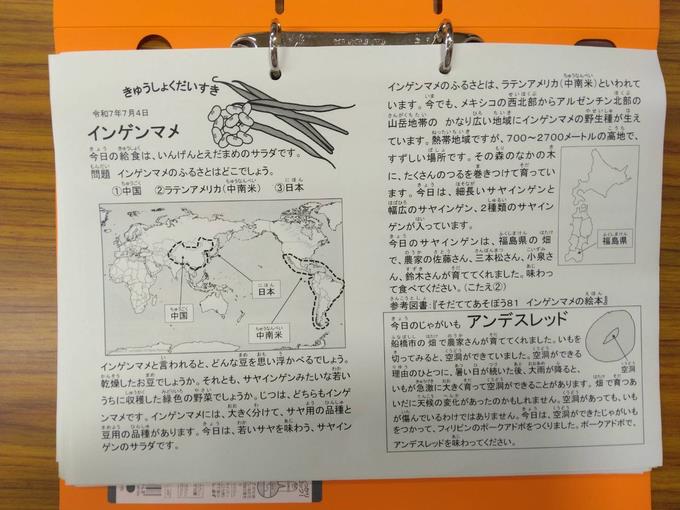 きゅうしょくだいすき
令和7年7月4日
インゲンマメ
今日の給食は、いんげんとえだまめのサラダです。
問題 インゲンマメのふるさとはどこでしょう。
①中国 ②ラテンアメリカ(中南米) ③日本
日本
中国
中南米
インゲンマメと言われると、どんな豆を思い浮かべるでしょう。
乾燥したお豆でしょうか。それとも、サヤインゲンみたいな若い
うちに収穫した緑色の野菜でしょうか。じつは、どちらもインゲ
ンマメです。インゲンマメには、大きく分けて、サヤ用の品種と
豆用の品種があります。今日は、若いサヤを味わう、サヤイン
ゲンのサラダです。
インゲンマメのふるさとは、ラテンアメリカ(中南米)といわれて
います。今でも、メキシコの西北部からアルゼンチン北部の
山岳地帯の かなり広い地域にインゲンマメの野生種が生え
ています。熱帯地域ですが、700~2700メートルの高地で、
すずしい場所です。その森のなかの木
に、たくさんのつるを巻きつけて育ってい
ます。今日は、細長いサヤインゲンと
幅広のサヤインゲン、2種類のサヤイン
ゲンが入っています。
今日のサヤインゲンは、福島県の 畑
で、農家の佐藤さん、三本松さん、小泉さ
ん、鈴木さんが育ててくれました。味わっ
て食べてください。(こたえ②)
福島県
参考図書:『そだててあそぼう81 インゲンマメの絵本』
今日のじゃがいも アンデスレッド
船橋市の 畑で農家さんが育ててくれました。いもを
切ってみると、空洞ができていました。空洞ができる
理由のひとつに、暑い日が続いた後、大雨が降ると、
いもが急激に大きく育って空洞ができることがあります。畑で育つあ
いだに天候の変化があったのかもしれません。空洞があっても、いも
が傷んでいるわけではありません。今日は、空洞のできたじゃがいも
をつかって、フィリピンのポークアドボをつくりました。ポークアドボで、
アンデスレッドを味わってください。
空洞